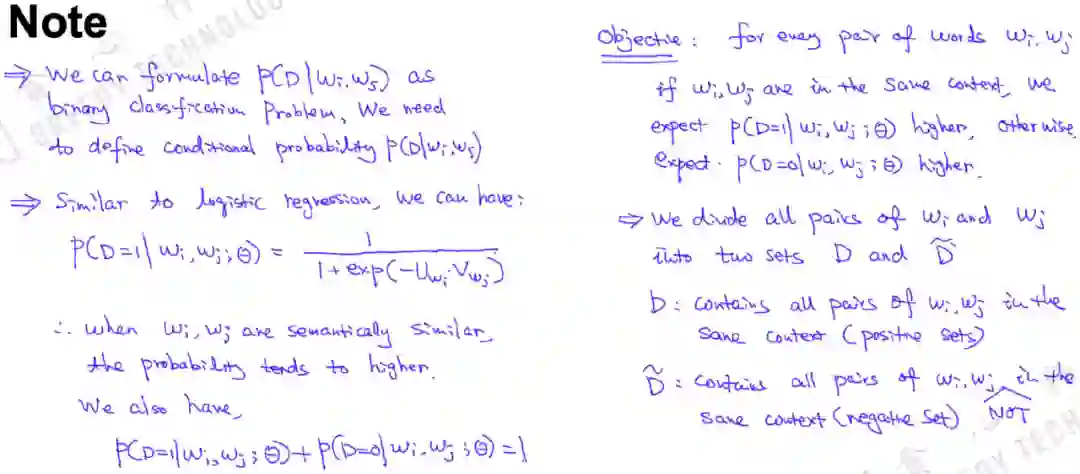 Note
⇒ We can formulate P(D|wi,wj) as
binary classification Problem, We need
to define conditional probability P(D|wi,wj)
⇒ Similar to logistic regression, we can have:
P(D=1|wi,wj;θ) = 1 / (1+exp(-Uwi·Vwj))
∴ when wi,wj are semantically similar,
the probability tends to higher.
We also have,
P(D=1|wi,wj;θ)+P(D=0|wi,wj;θ)=1
Objective: for every pair of words wi,wj
if wi,wj are in the same context, we
expect P(D=1|wi,wj;θ) higher, otherwise
expect. P(D=0|wi,wj;θ) higher.
⇒ We divide all pairs of wi and wj
into two sets D and D̃
D: contains all pairs of wi,wj in the
same context (positive sets)
D̃: contains all pairs of wi,wj in the
NOT
same context (negative set)